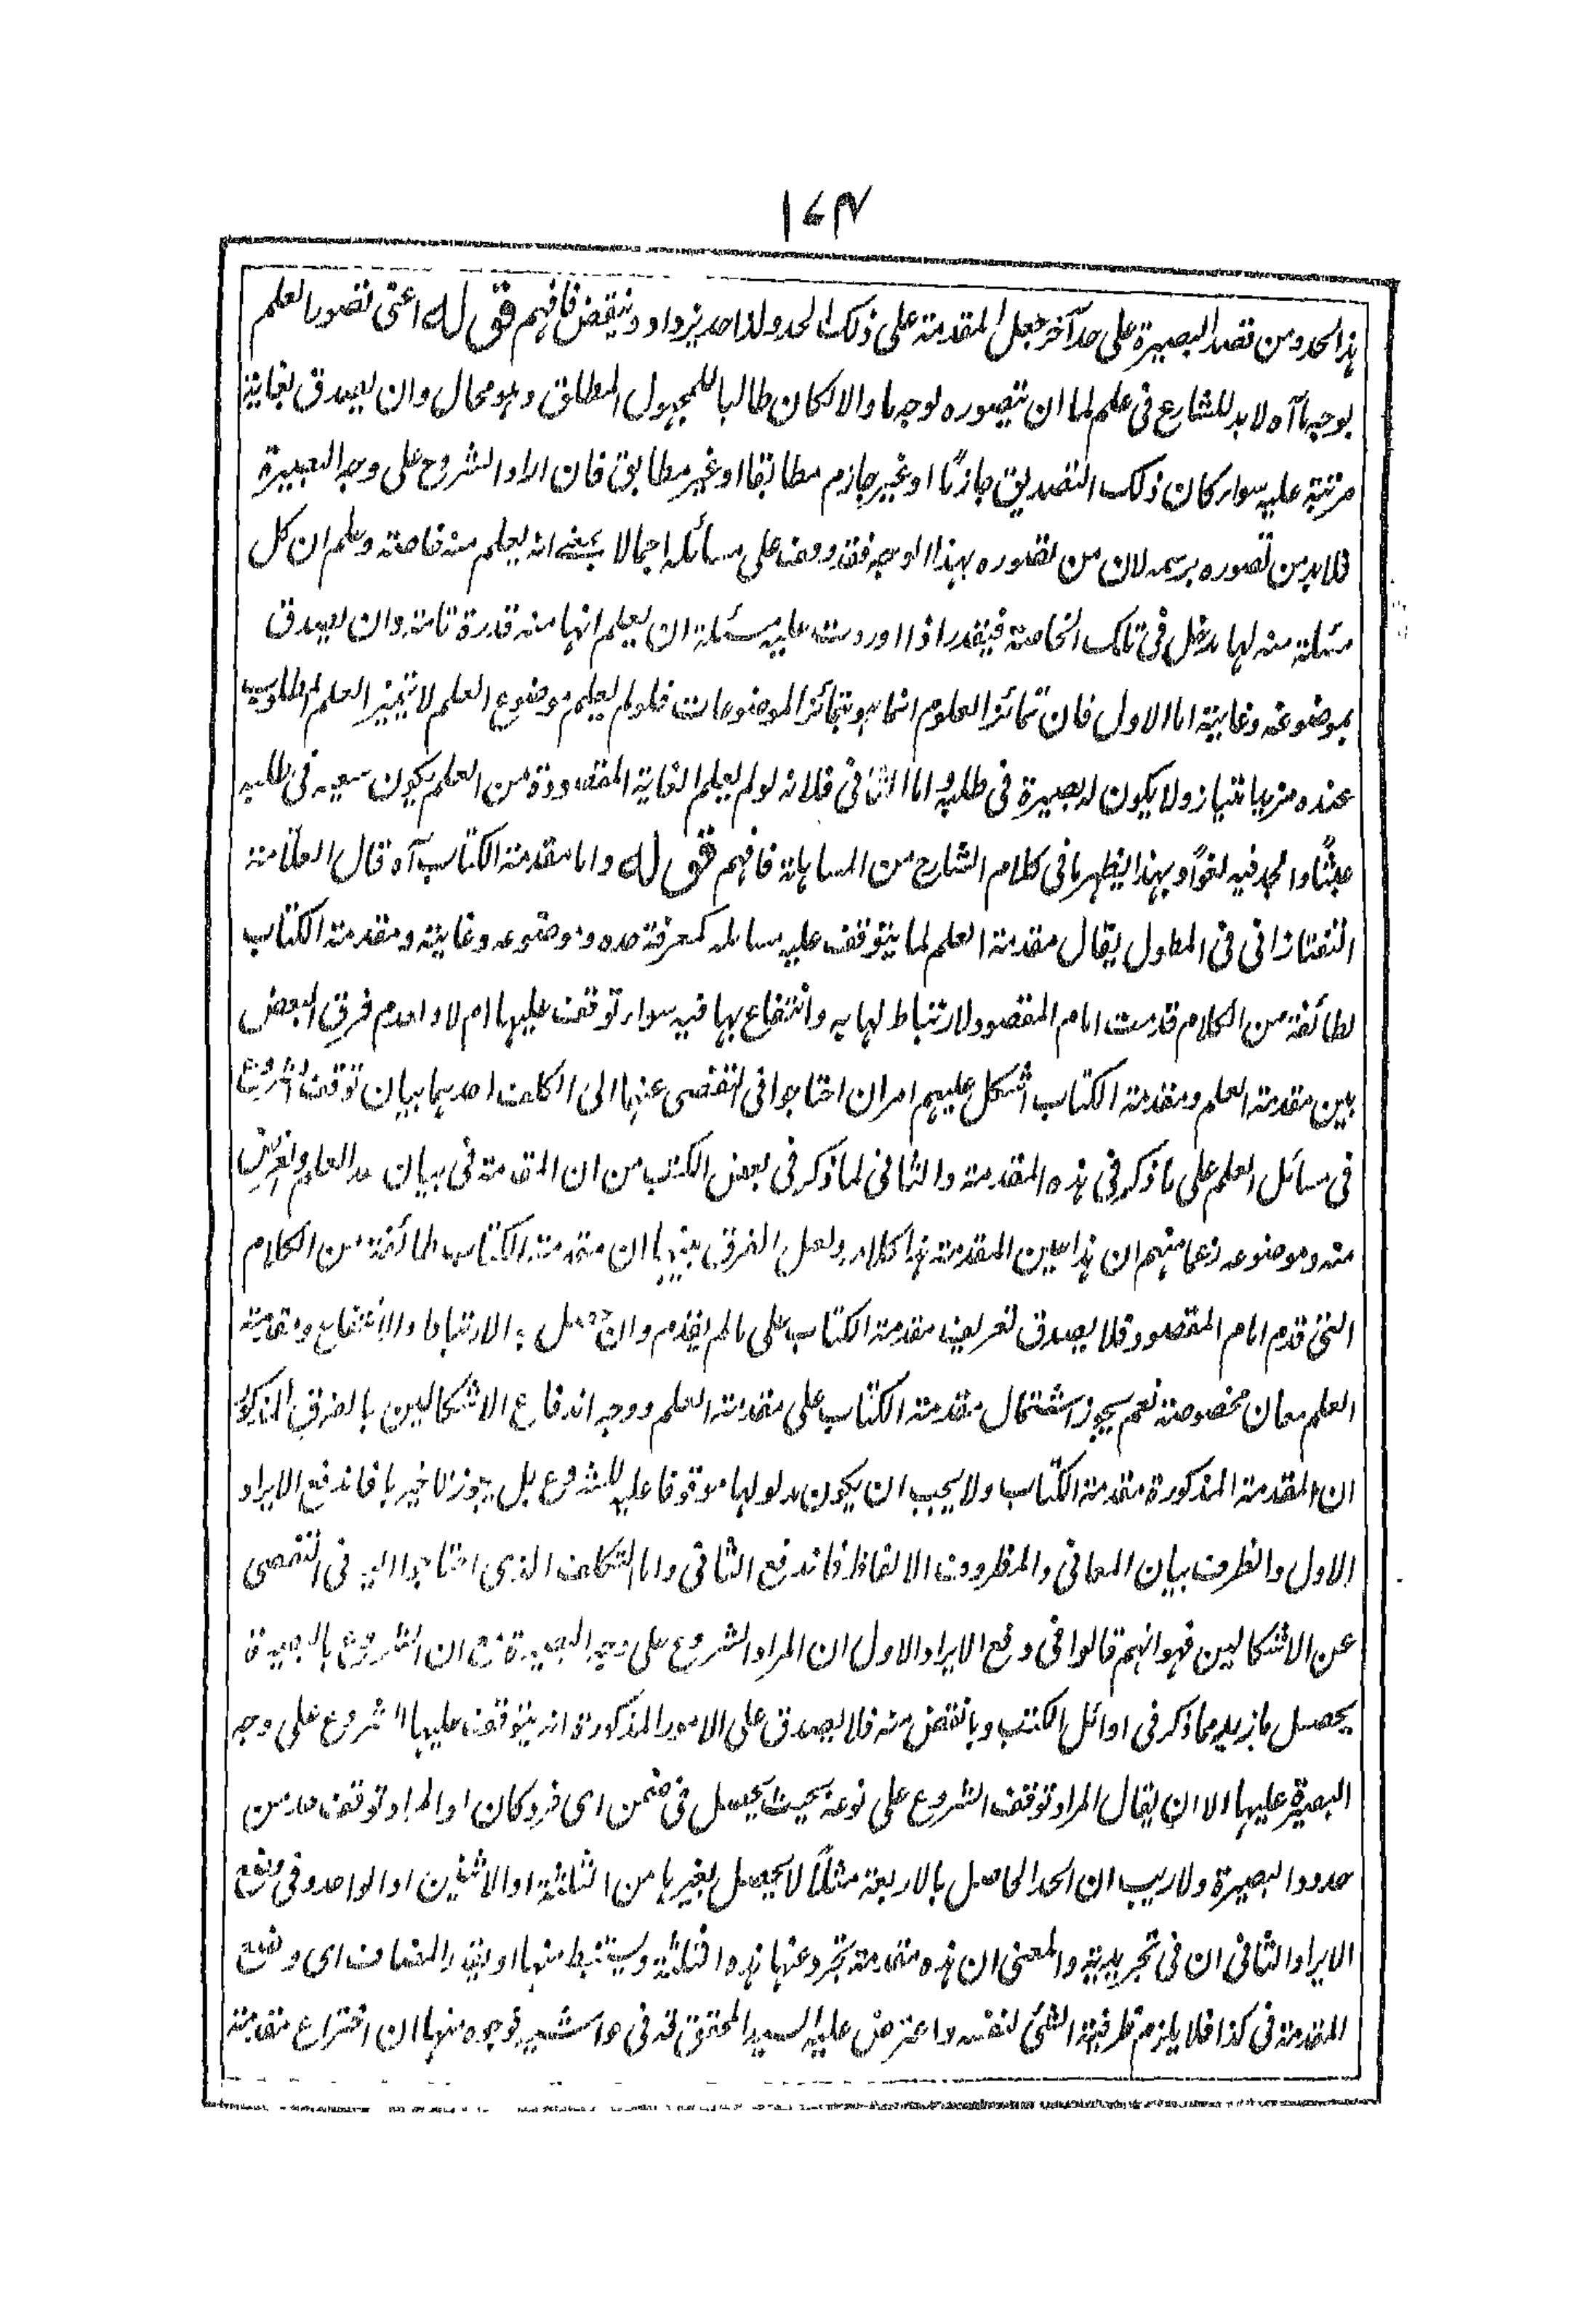 ١٧٣
هذا الحد ومن قصد البصيرة على حد آخر جعل المقدمة على ذلك الحد ولذا حد يزداد وينقض فافهم قوله اعنى تصور العلم
بوجه ما آه لابد للشارع فى علم لما ان يتصوره لوجه ما والا لكان طالبا للمجهول المطلق وهو محال وان يصدق بغاية
مرتبة عليه سواء كان ذلك التصديق جازما او غير جازم مطابقا او غير مطابق فان اراد الشروع على وجه البصيرة
فلابد من تصوره برسمه لان من تصوره بهذا الوجه فقد وقف على مسائله اجمالا بمعنے انه يعلم منه خاصته وعلم ان كل
مسئلة منه لها دخل فى تلك الخاصة فيقدر اذا اوردت عليه مسئلة ان يعلم انها منه قدرة تامة وان يصدق
بموضوعه وغاية اما الاول فان تمائز العلوم انما هو بتمائز الموضوعات فلو لم يعلم موضوع العلم لا يتميز العلم المطلوب
عنده مزيد امتياز ولا يكون له بصيرة فى طلبه واما الثانى فلانه لو لم يعلم الغاية المقصودة من العلم يكون سعيه فى طلبه
عبثا والجد فيه لغوا وبهذا يظهر ما فى كلام الشارح من المساهلة فافهم قوله واما مقدمة الكتاب آه قال العلامة
التفتازانى فى المطول يقال مقدمة العلم لما يتوقف عليه مسائله كمعرفة حده وموضوعه وغايته ومقدمة الكتاب
لطائفة من الكلام قدمت امام المقصود لارتباط لها به وانتفاع بها فيه سواء توقف عليها ام لا ولعدم فرق البعض
بين مقدمة العلم ومقدمة الكتاب اشكل عليهم امران احتاجوا فى التفصى عنهما الى الكلف احدهما بيان توقف الشروع
فى مسائل العلم على ما ذكر فى هذه المقدمة والثانى لما ذكر فى بعض الكتب من ان المقدمة فى بيان حد العلم والغرض
منه وموضوعه زعما منهم ان هذا عين المقدمة هذا كلامه ولعل الفرق بينهما ان مقدمة الكتاب طائفة من الكلام
التى قدم امام المقصود فلا يصدق تعريف مقدمة الكتاب على ما لم يقدم وان حصل به الارتباط والانتفاع ومقدمة
العلم معان مخصوصة نعم يجوز اشتمال مقدمة الكتاب على مقدمة العلم ووجه اندفاع الاشكالين بالفرق المذكور
ان المقدمة المذكورة مقدمة الكتاب ولا يجب ان يكون مدلولها موقوفا عليه للشروع بل يجوز تاخيرها فاندفع الايراد
الاول والظرف بيان المعانى والمظروف الالفاظ فاندفع الثانى واما التكلف الذى احتاجوا اليه فى التفصى
عن الاشكالين فهو انهم قالوا فى دفع الايراد الاول ان المراد الشروع على وجه البصيرة مع ان الشروع بالبصيرة
يحصل بازيد مما ذكر فى اوائل الكتب وبانقض منه فلا يصدق على الامور المذكورة انه يتوقف عليها الشروع على وجه
البصيرة عليها الا ان يقال المراد توقف الشروع على نوعه بحيث يحصل فى ضمن اى فرد كان او المراد توقف حد من
حدود البصيرة ولا ريب ان الحد الحاصل بالاربعة مثلا لا يحصل بغيرها من الثلثة او الاثنين او الواحد وفى دفع
الايراد الثانى ان فى تجريدية والمعنى ان هذه مقدمة تجرد عنها هذه الثلثة ويستنبط منها او بتقدير المضاف اى وضع
المقدمة فى كذا فلا يلزم ظرفية الشئ لنفسه واعترض عليه السيد المحقق قده فى حواشيه بوجوه منها ان اختراع مقدمة